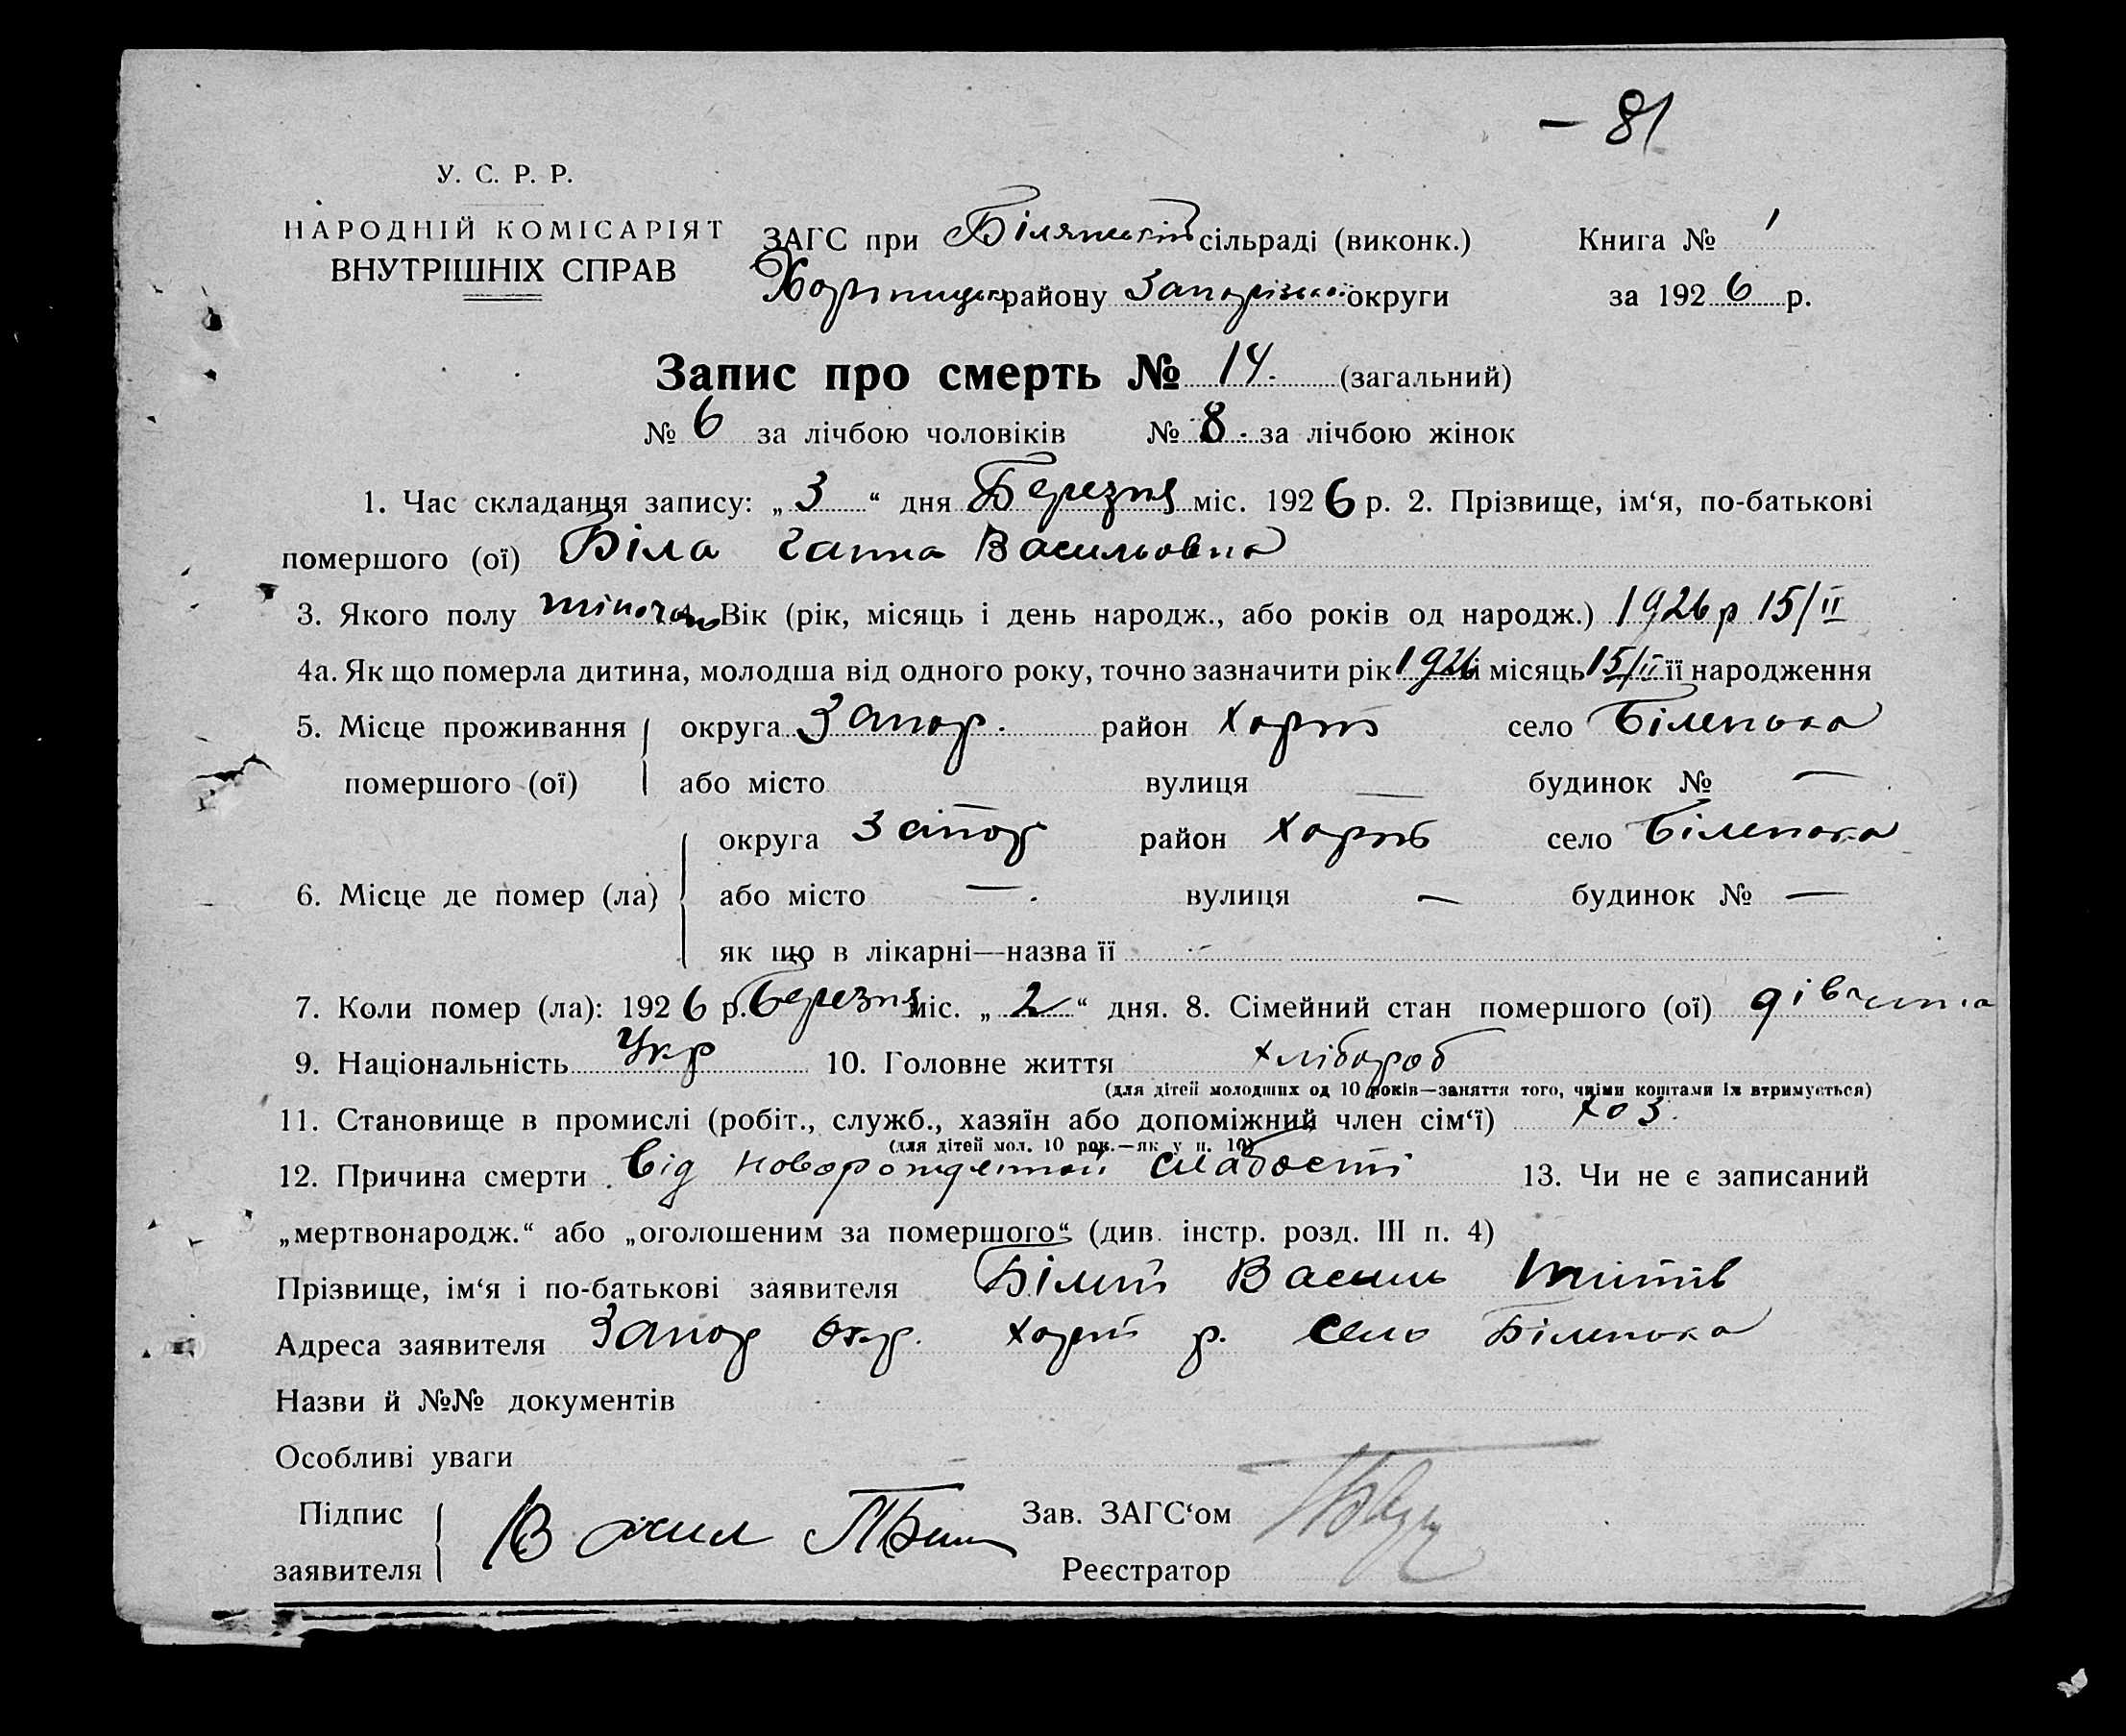 — 81
У. С. Р. Р.
НАРОДНІЙ КОМІСАРІЯТ
ВНУТРІШНІХ СПРАВ
ЗАГС при сільраді (виконк.)
Книга № 1
району Запорізької округи
за 1926 р.
Запис про смерть № 14. (загальний)
№ 6 за лічбою чоловіків № 8. за лічбою жінок
1. Час складання запису: „3“ дня Березня міс. 1926 р. 2. Прізвище, ім‘я, по-батькові
помершого (ої) Біла Ганна Васильовна
3. Якого полу жіночого 4. Вік (рік, місяць і день народж., або років од народж.) 1926 р 15/II
4а. Як що померла дитина, молодша від одного року, точно зазначити рік 1926 і місяць 15/II її народження
5. Місце проживання округа Запор. район Хорт село Біленька
помершого (ої) або місто вулиця — будинок № —
округа Запор район Хорт село Біленька
6. Місце де помер (ла) або місто — . вулиця — будинок № —
як що в лікарні—назва її
7. Коли помер (ла): 1926 р. Березня міс. „2“ дня. 8. Сімейний стан помершого (ої) дівчина
9. Національність Укр 10. Головне життя хлібороб
(для дітей молодших од 10 років—заняття того, чиїми коштами їх втримується)
11. Становище в промислі (робіт., служб., хазяїн або допоміжний член сім‘ї) хоз.
(для дітей мол. 10 рок.—як у п. 10)
12. Причина смерти від новорожденной слабості 13. Чи не є записаний
„мертвонародж.“ або „оголошеним за помершого“ (див. інстр. розд. III п. 4)
Прізвище, ім‘я і по-батькові заявителя Білий Василь Титів
Адреса заявителя Запор Окр. Хорт р. село Біленька
Назви й №№ документів
Особливі уваги
Підпис
заявителя
Зав. ЗАГС‘ом
Реєстратор